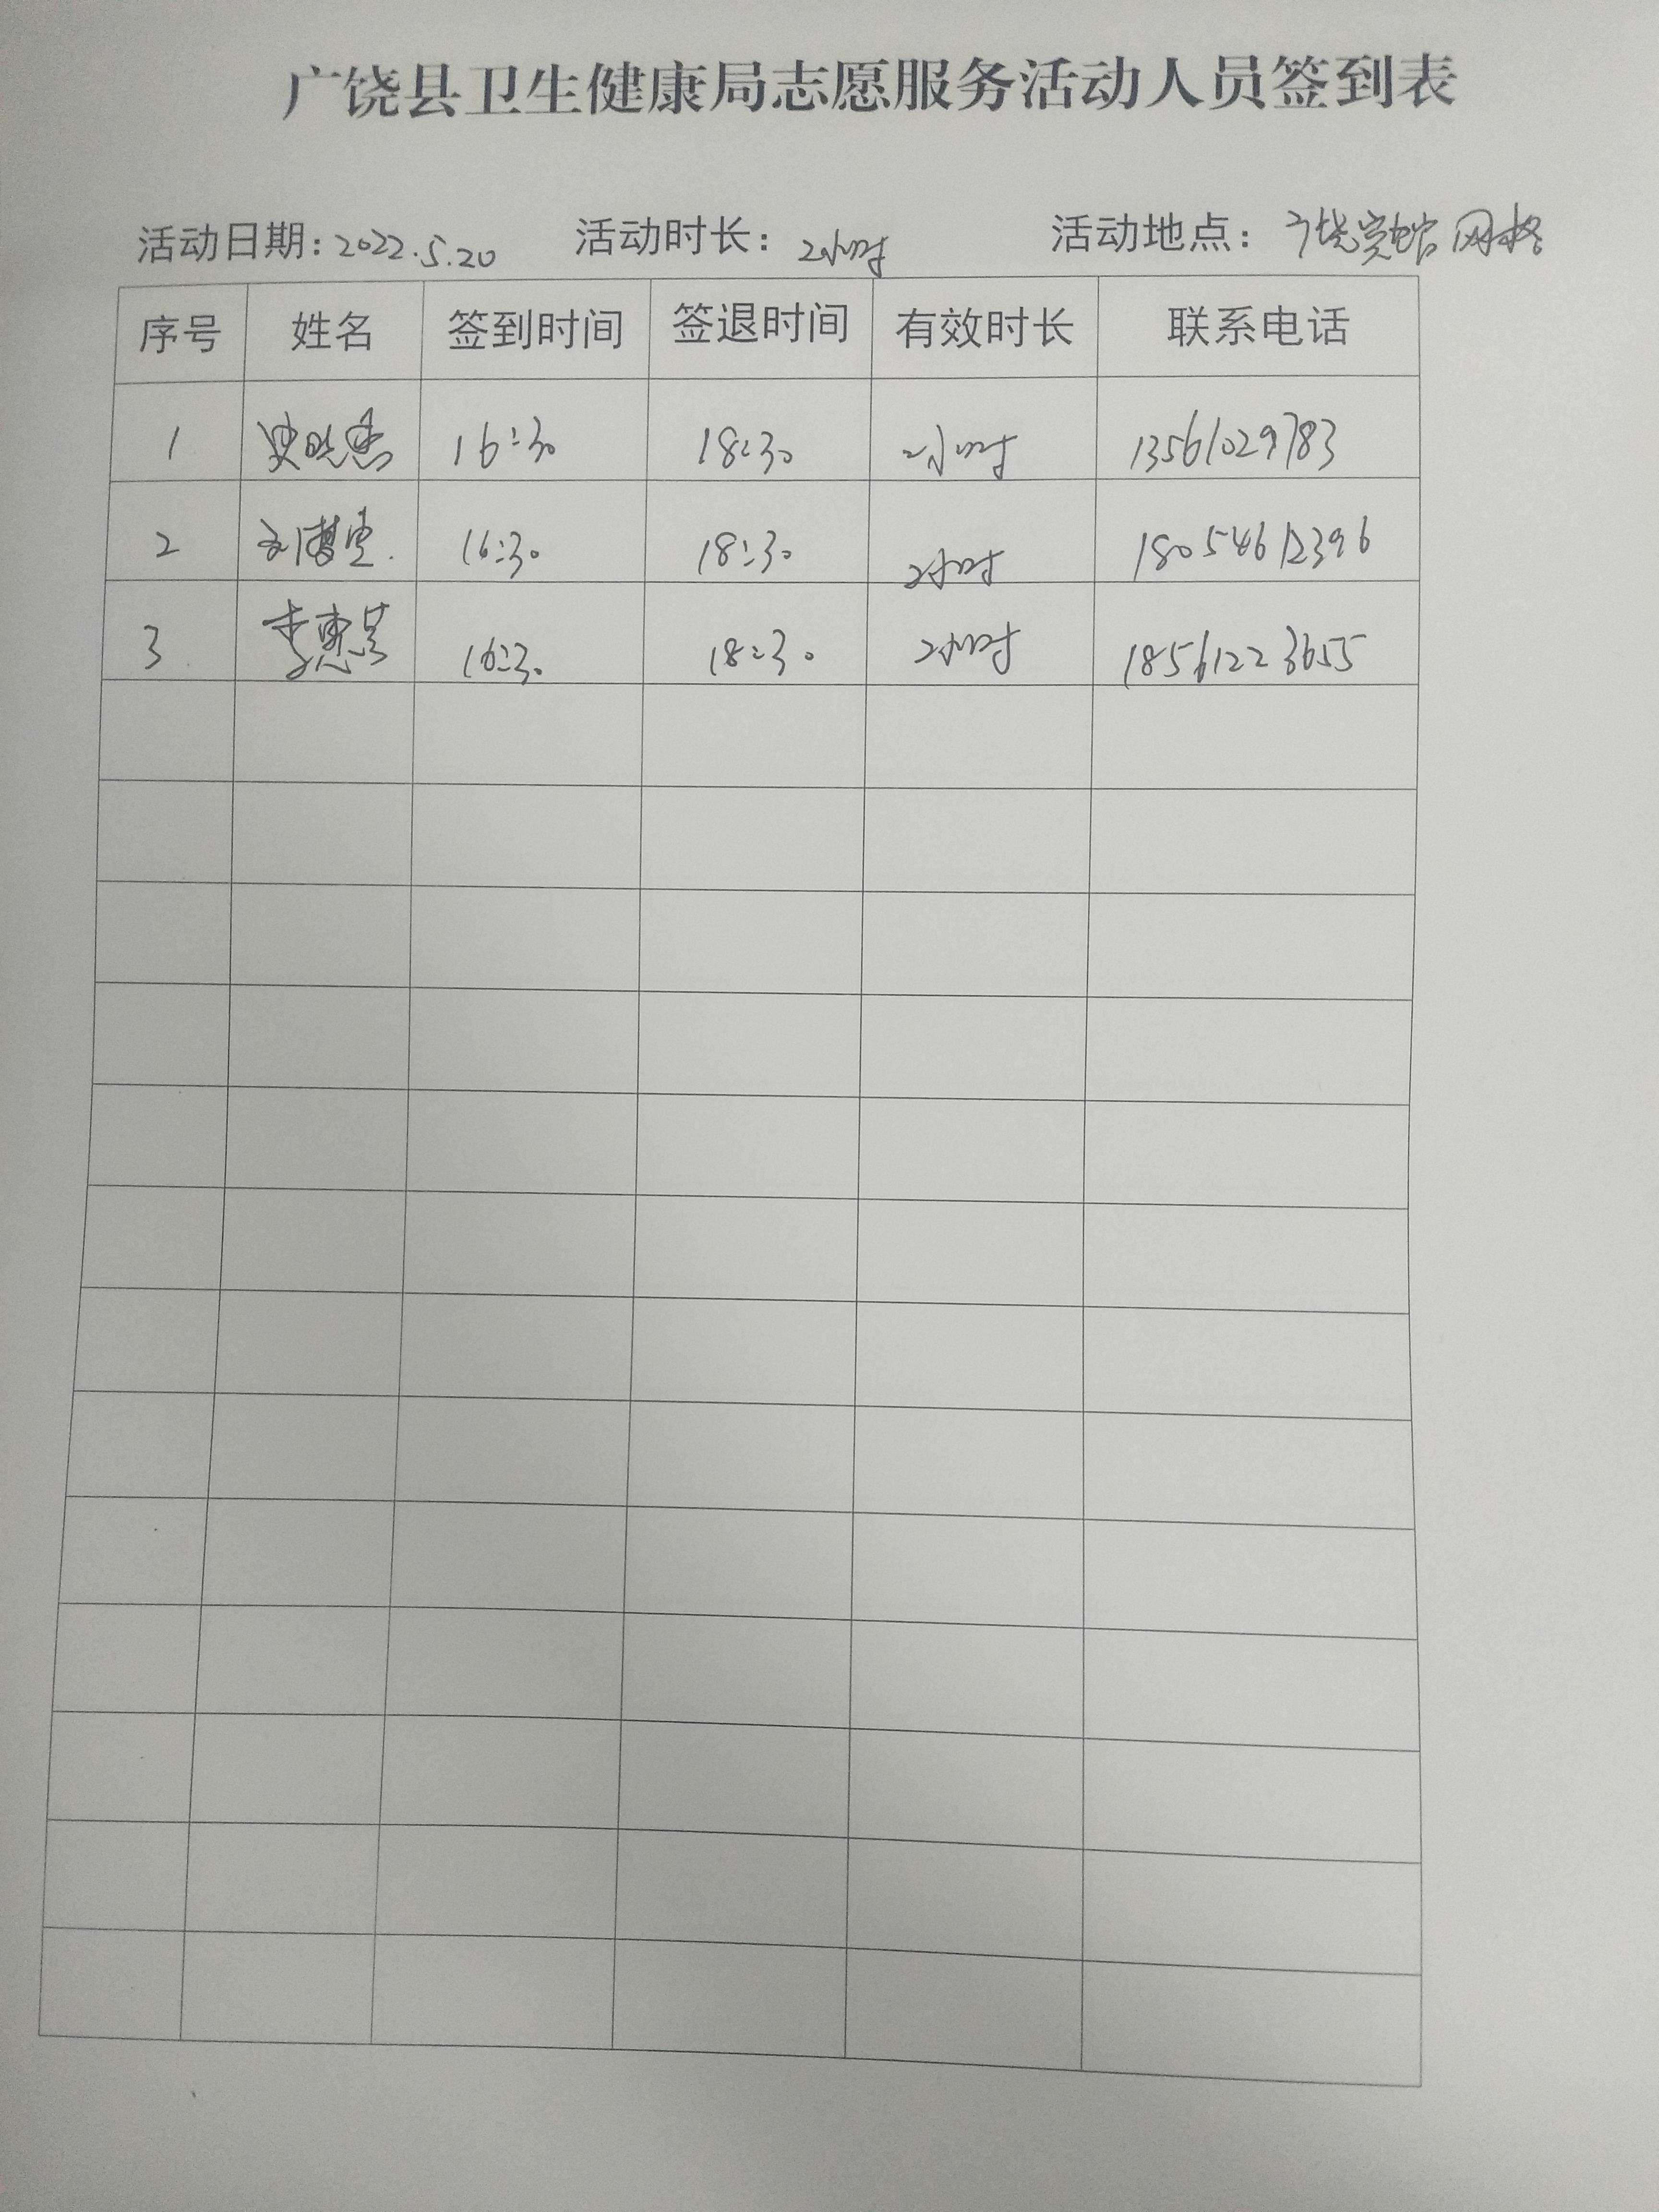 广饶县卫生健康局志愿服务活动人员签到表
活动日期：2022.5.20 活动时长：2小时 活动地点：广饶宾馆网格
序号 姓名 签到时间 签退时间 有效时长 联系电话
1 16:30 18:30 2小时 13561029783
2 16:30 18:30 2小时 18054612396
3 李惠 16:30 18:30 2小时 18561223655